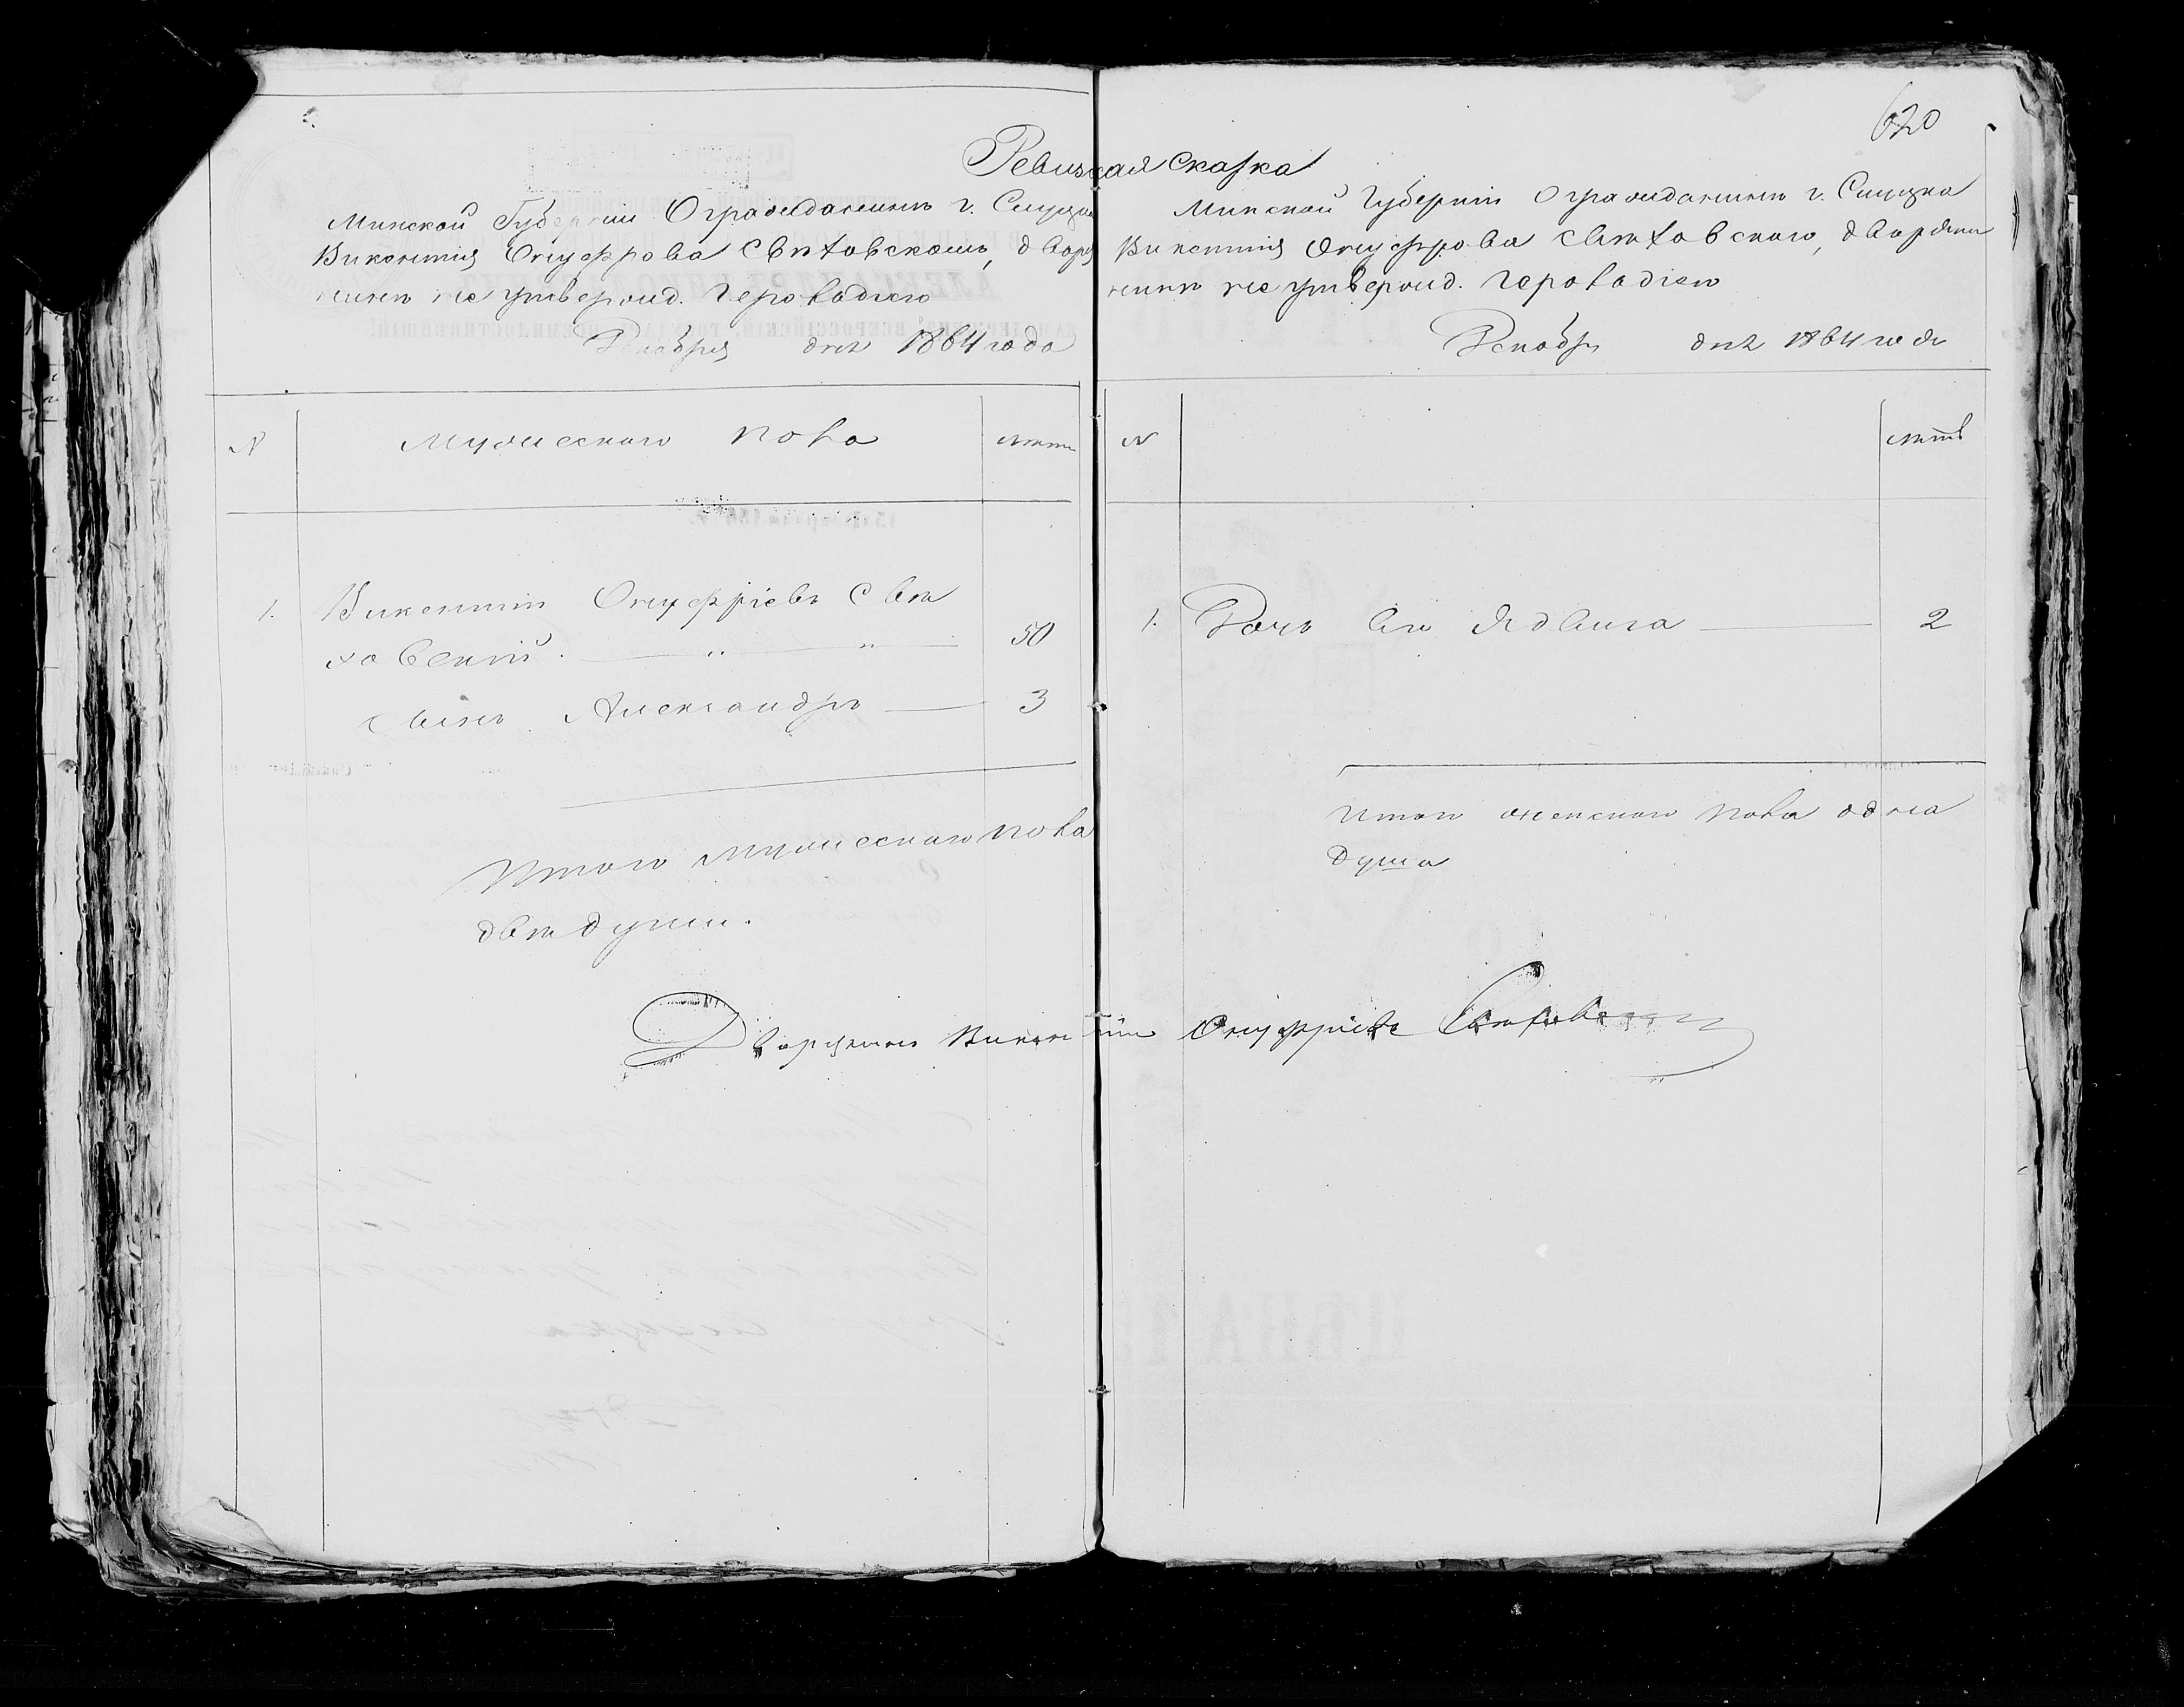 620
Ревизская сказка
Минской Губернии О гражданинѣ г. Слуцка
Викентия Онуфрова Свѣховскомъ, дворя
нинѣ не утвержд. Герольдіею
Декабря дня 1864 года
N Мужескаго пола лѣта
1. Викентій Онуфріевъ Свѣ
ховскій. — " — " — 50
сынъ Александръ — 3
Итого мужескаго пола
двѣ души.
Минской Губерніи О гражданинѣ г. Слуцка
Викентия Онуфрова Свѣховскаго, дворяни
нинѣ не утвержд. Герольдіею
Декабря дня 1864 года
N лѣтъ
1. Дочь его Ядвига — 2
Итого женскаго пола одна
душа
Дворянинъ Викентій Онуфріевъ Свѣховскій